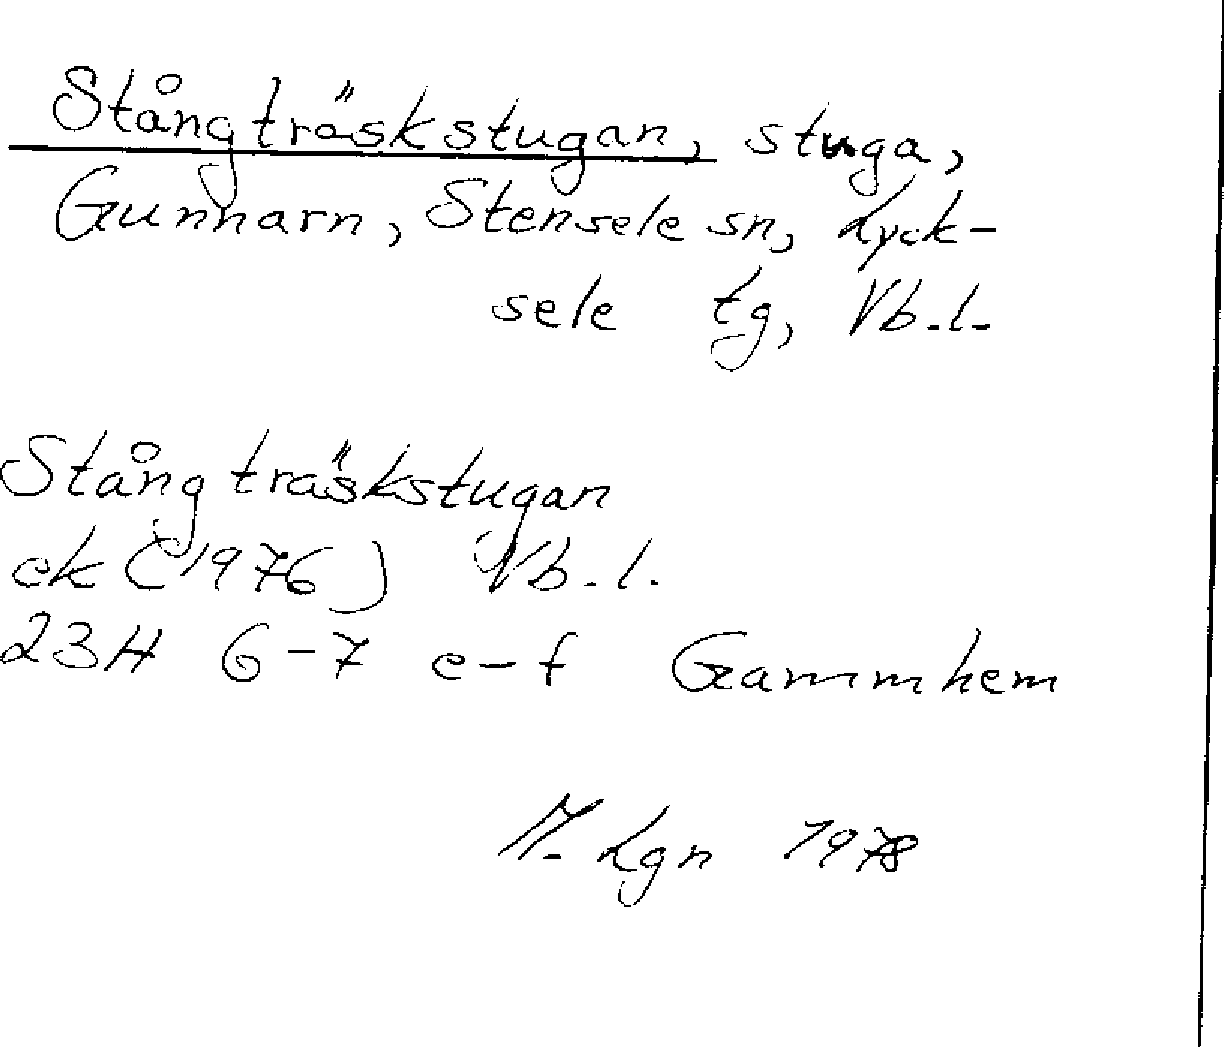 Stångträskstugan, stuga,
Gunnarn, Stensele sn, Lyck-
sele tg, Vb.l.
Stångträskstugan
ek (1976) Vb.l.
23H 6-7 e-f Gammhem
M. Lgn 1978